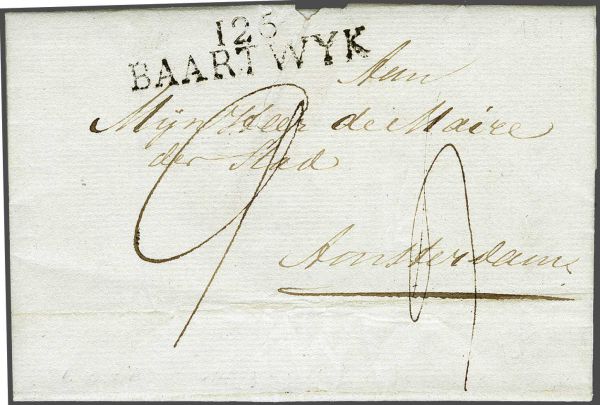 125
BAARTWYK
Aan
Mijn Heer de Maire
der Stad
Amsterdam
9